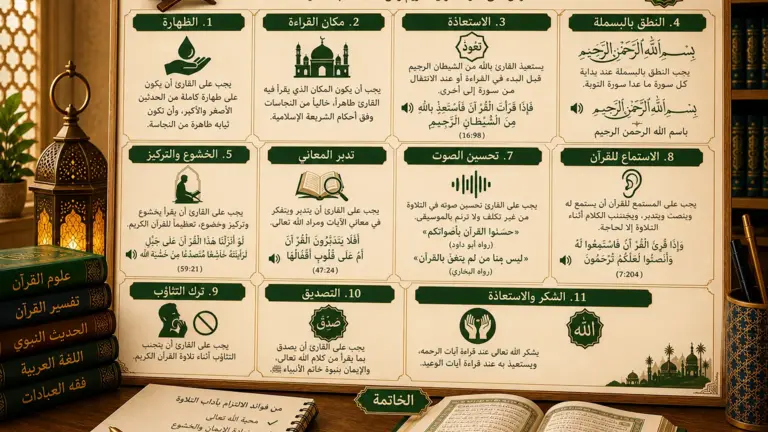 1. الطهارة
يجب على القارئ أن يكون
على طهارة كاملة من الحدثين
الأصغر والأكبر، وأن تكون
ثيابه طاهرة من النجاسة.
2. مكان القراءة
يجب أن يكون المكان الذي يقرأ فيه
القارئ طاهراً، خالياً من النجاسات
وفق أحكام الشريعة الإسلامية.
3. الاستعاذة
تعوذ
يستعيذ القارئ بالله من الشيطان الرجيم
قبل البدء في القراءة أو عند الانتقال
من سورة إلى أخرى.
فَإِذَا قَرَأْتَ الْقُرْآنَ فَاسْتَعِذْ بِاللَّهِ
مِنَ الشَّيْطَانِ الرَّجِيمِ
(16:98)
4. النطق بالبسملة
بِسْمِ اللَّهِ الرَّحْمَنِ الرَّحِيمِ
يجب النطق بالبسملة عند بداية
كل سورة ما عدا سورة التوبة.
بِسْمِ اللَّهِ الرَّحْمَنِ الرَّحِيمِ
باسم الله الرحمن الرحيم
5. الخشوع والتركيز
يجب على القارئ أن يقرأ بخشوع
وتركيز وخضوع، تعظيماً للقرآن الكريم.
لَوْ أَنْزَلْنَا هَذَا الْقُرْآنَ عَلَى جَبَلٍ
لَرَأَيْتَهُ خَاشِعًا مُتَصَدِّعًا مِنْ خَشْيَةِ اللَّهِ
(59:21)
تدبر المعاني
يجب على القارئ أن يتدبر ويتفكر
في معاني الآيات ومراد الله تعالى.
أَفَلَا يَتَدَبَّرُونَ الْقُرْآنَ
أَمْ عَلَى قُلُوبٍ أَقْفَالُهَا
(47:24)
7. تحسين الصوت
يجب على القارئ تحسين صوته في التلاوة
من غير تكلف ولا ترنم بالموسيقى.
«حسّنوا القرآن بأصواتكم»
(رواه أبو داود)
«ليس منا من لم يتغنّ بالقرآن»
(رواه البخاري)
8. الاستماع للقرآن
يجب على المستمع للقرآن أن يستمع له
وينصت ويتدبر، ويجتنب الكلام أثناء
التلاوة إلا لحاجة.
وَإِذَا قُرِئَ الْقُرْآنُ فَاسْتَمِعُوا لَهُ
وَأَنْصِتُوا لَعَلَّكُمْ تُرْحَمُونَ
(7:204)
9. ترك التثاؤب
يجب على القارئ أن يتجنب
التثاؤب أثناء تلاوة القرآن الكريم.
10. التصديق
صدّق
يجب على القارئ أن يصدق
بما يقرأ من كلام الله تعالى،
والإيمان بنبوة خاتم الأنبياء ﷺ
11. الشكر والاستعاذة
الله
يشكر الله تعالى عند قراءة آيات الرحمة،
ويستعيذ به عند قراءة آيات الوعيد.
علوم القرآن
تفسير القرآن
الحديث النبوي
اللغة العربية
فقه العبادات
الخاتمة
من فوائد الالتزام بآداب التلاوة
محبة الله تعالى
زيادة الإيمان والخشوع